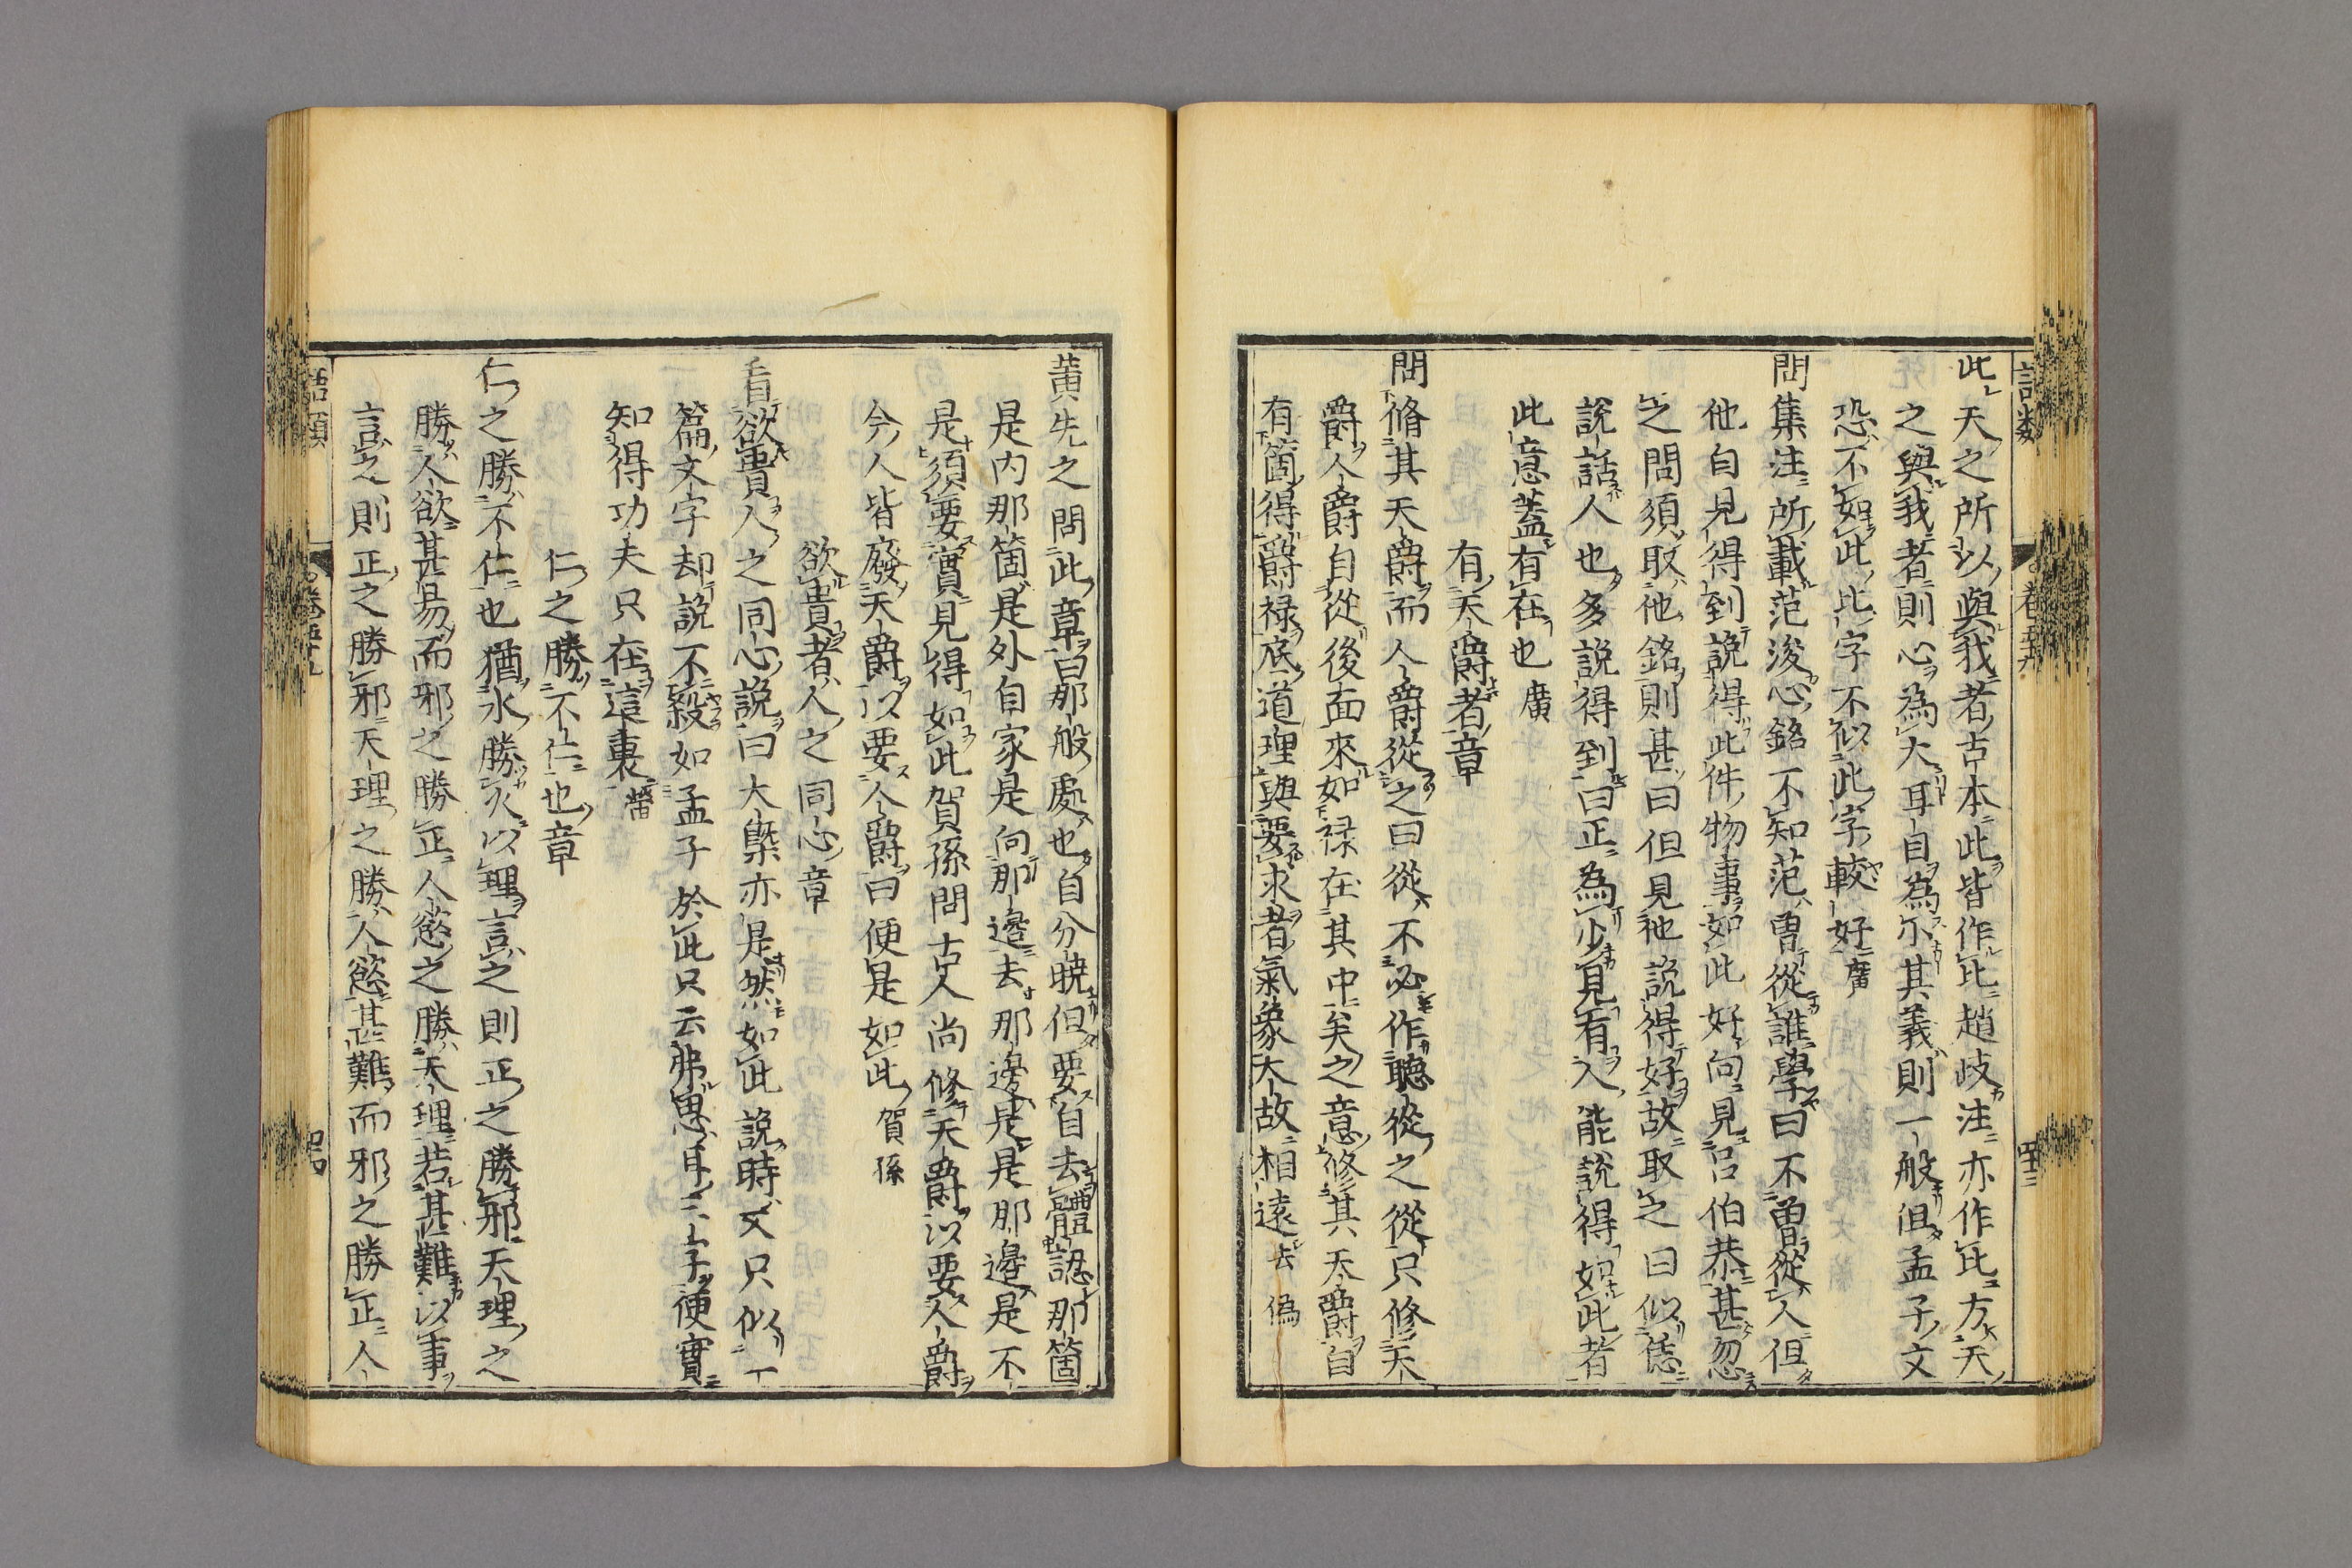 語類 卷五十九 四十三
此天之所以與我者古本此皆作比趙歧注亦作比方天
之與我者則心為大耳自為尓其義則一般但孟子文
恐不如此比字不似此字較好廣
問集注所載范浚心銘不知范曽從誰學曰不曽從人但
他自見得到說得此件物事如此好向見呂伯恭甚忽
之問須取他銘則甚曰但見他說得好故取之曰似恁
說話人也多說得到曰正為少見有人能說得如此者
此意蓋有在也廣
有天爵者章
問脩其天爵而人爵從之曰從不必作聽從之從只修天
爵人爵自從後面來如禄在其中矣之意修其天爵自
有箇得爵禄底道理與要求者氣象大故相遠去偽
黄先之問此章曰那般處也自分曉但要自去體認那箇
是内那箇是外自家是向那邉去那邉是是那邉是不
是須要實見得如此賀孫問古人尚修天爵以要人爵
今人皆廢天爵以要人爵曰便是如此賀孫
欲貴者人之同心章
看欲貴人之同心說曰大槩亦是然如此說時又只似一
篇文字却說不殺如孟子於此只云弗思耳三字便實
知得功夫只在這裏㽦
仁之勝不仁也章
仁之勝不仁也猶水勝火以理言之則正之勝邪天理之
勝人欲甚易而邪之勝正人慾之勝天理若甚難以事
言之則正之勝邪天理之勝人慾甚難而邪之勝正人
語類 卷五十九 四十四